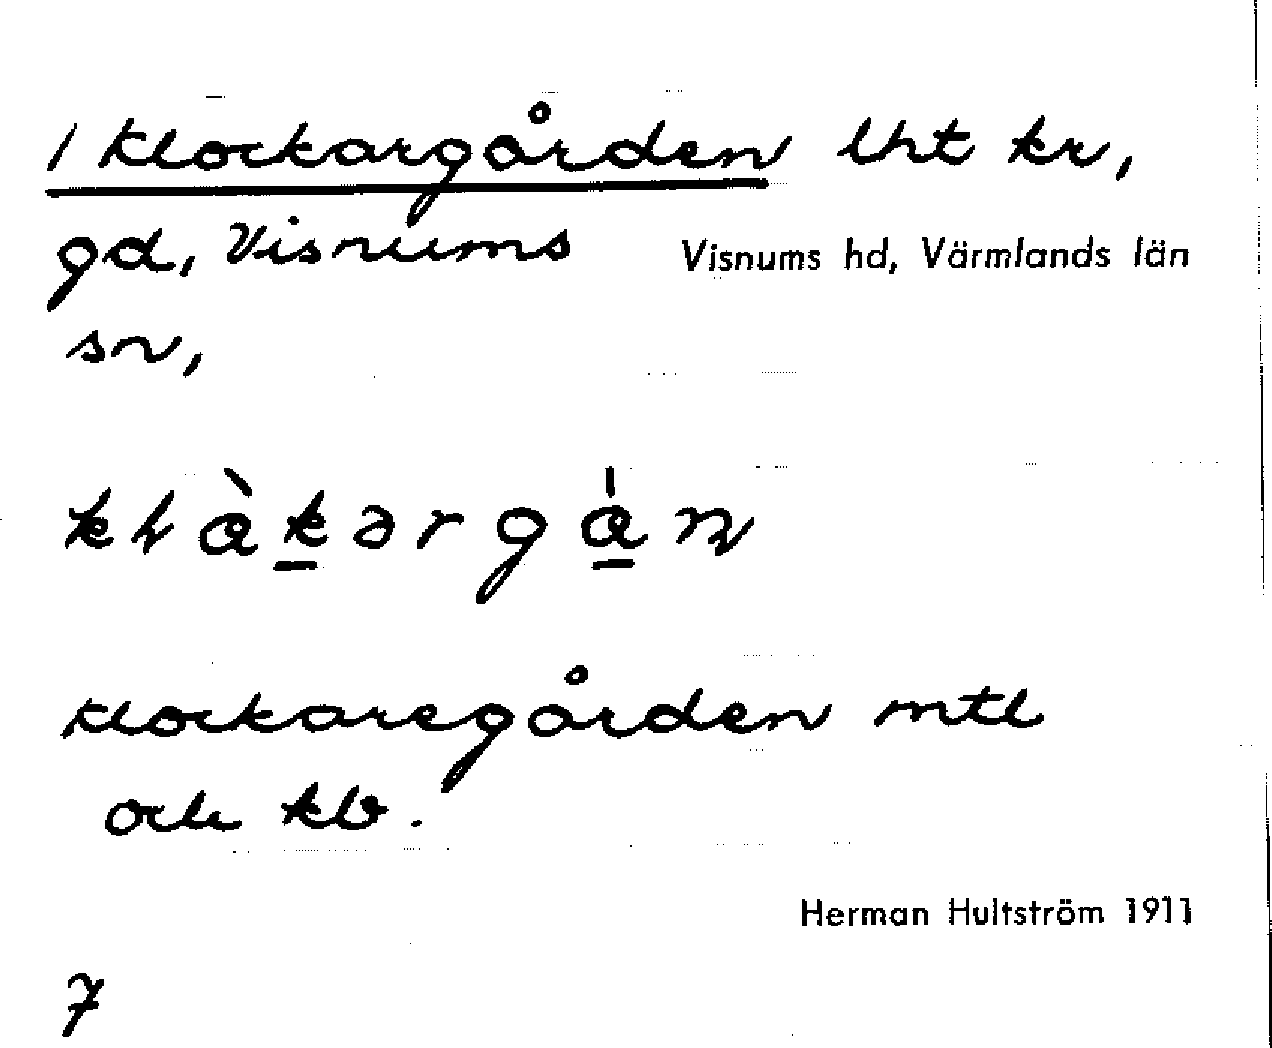 1 Klockargården lht kr,
gd, Visnums Visnums hd, Värmlands län
sn,
klockaregården mtl
och kb.
Herman Hultström 1911
7